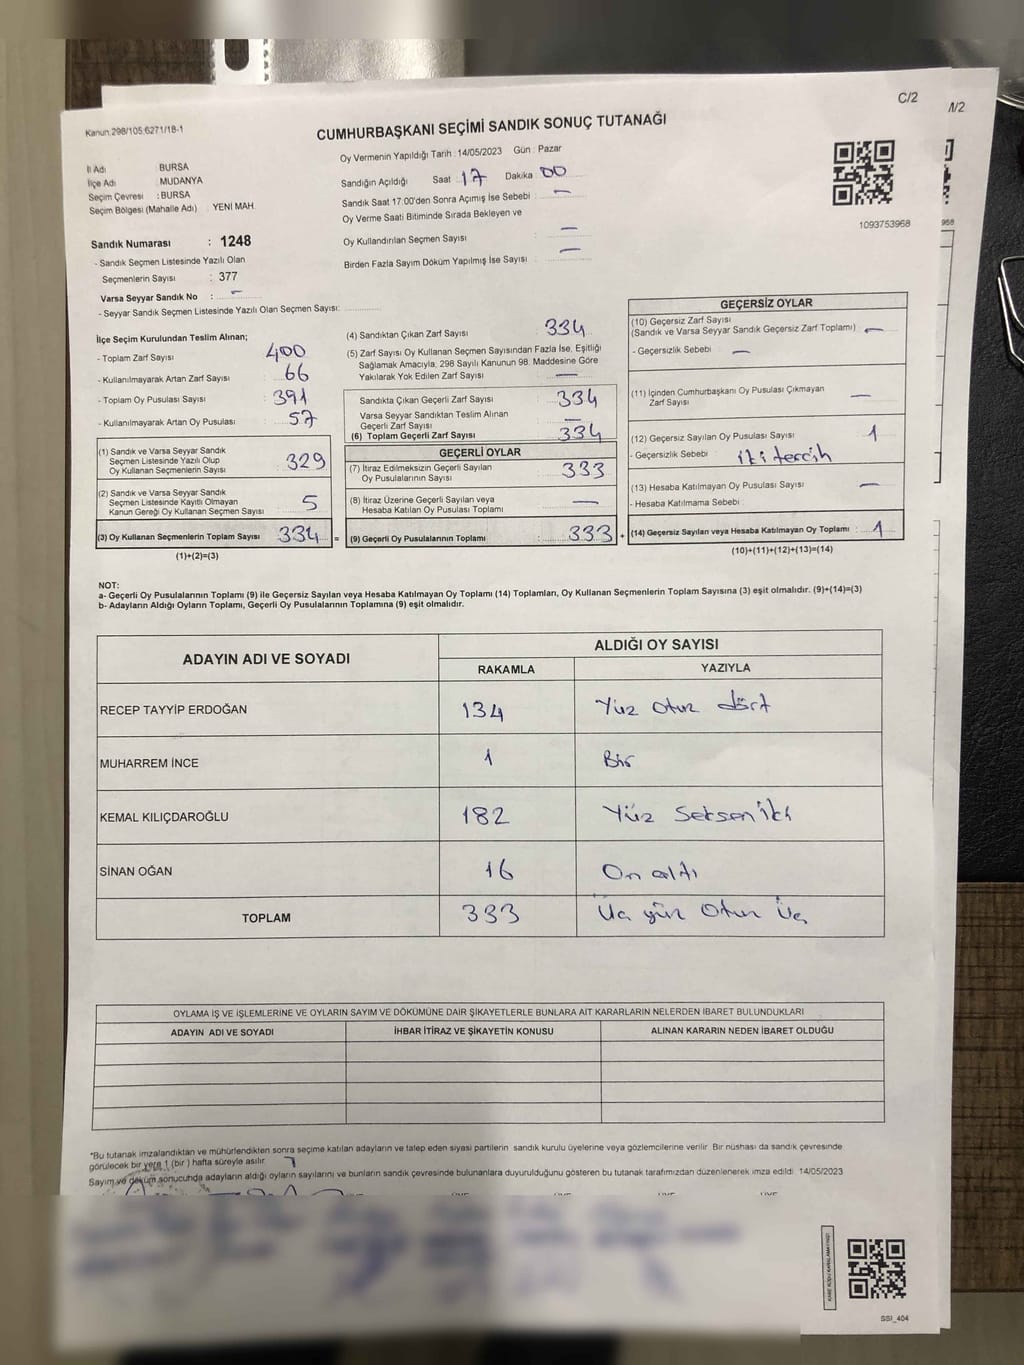 C/2
N/2
Kanun:298/105;6271/18-1
CUMHURBAŞKANI SEÇİMİ SANDIK SONUÇ TUTANAĞI
İl Adı BURSA
İlçe Adı MUDANYA
Seçim Çevresi : BURSA
Seçim Bölgesi (Mahalle Adı) YENİ MAH.
Oy Vermenin Yapıldığı Tarih : 14/05/2023 Gün : Pazar
Sandığın Açıldığı Saat 17 Dakika 00
Sandık Saat 17:00'den Sonra Açımış İse Sebebi : —
Oy Verme Saati Bitiminde Sırada Bekleyen ve
Oy Kullandırılan Seçmen Sayısı : —
Birden Fazla Sayım Döküm Yapılmış İse Sayısı : —
1093753968
968
Sandık Numarası : 1248
- Sandık Seçmen Listesinde Yazılı Olan
Seçmenlerin Sayısı : 377
Varsa Seyyar Sandık No : —
- Seyyar Sandık Seçmen Listesinde Yazılı Olan Seçmen Sayısı:
İlçe Seçim Kurulundan Teslim Alınan;
- Toplam Zarf Sayısı : 400
- Kullanılmayarak Artan Zarf Sayısı : 66
- Toplam Oy Pusulası Sayısı : 391
- Kullanılmayarak Artan Oy Pusulası : 57
(1) Sandık ve Varsa Seyyar Sandık
Seçmen Listesinde Yazılı Olup
Oy Kullanan Seçmenlerin Sayısı : 329
(2) Sandık ve Varsa Seyyar Sandık
Seçmen Listesinde Kayıtlı Olmayan
Kanun Gereği Oy Kullanan Seçmen Sayısı : 5
(3) Oy Kullanan Seçmenlerin Toplam Sayısı : 334 =
(1)+(2)=(3)
(4) Sandıktan Çıkan Zarf Sayısı : 334
(5) Zarf Sayısı Oy Kullanan Seçmen Sayısından Fazla İse, Eşitliği
Sağlamak Amacıyla, 298 Sayılı Kanunun 98. Maddesine Göre
Yakılarak Yok Edilen Zarf Sayısı : —
Sandıkta Çıkan Geçerli Zarf Sayısı : 334
Varsa Seyyar Sandıktan Teslim Alınan
Geçerli Zarf Sayısı : —
(6) Toplam Geçerli Zarf Sayısı : 334
GEÇERLİ OYLAR
(7) İtiraz Edilmeksizin Geçerli Sayılan
Oy Pusulalarının Sayısı : 333
(8) İtiraz Üzerine Geçerli Sayılan veya
Hesaba Katılan Oy Pusulası Toplamı : —
(9) Geçerli Oy Pusulalarının Toplamı : 333 +
GEÇERSİZ OYLAR
(10) Geçersiz Zarf Sayısı
(Sandık ve Varsa Seyyar Sandık Geçersiz Zarf Toplamı) : —
- Geçersizlik Sebebi : —
(11) İçinden Cumhurbaşkanı Oy Pusulası Çıkmayan
Zarf Sayısı : —
(12) Geçersiz Sayılan Oy Pusulası Sayısı : 1
- Geçersizlik Sebebi : iki tercih
(13) Hesaba Katılmayan Oy Pusulası Sayısı : —
- Hesaba Katılmama Sebebi :
(14) Geçersiz Sayılan veya Hesaba Katılmayan Oy Toplamı : 1
(10)+(11)+(12)+(13)=(14)
NOT:
a- Geçerli Oy Pusulalarının Toplamı (9) ile Geçersiz Sayılan veya Hesaba Katılmayan Oy Toplamı (14) Toplamları, Oy Kullanan Seçmenlerin Toplam Sayısına (3) eşit olmalıdır. (9)+(14)=(3)
b- Adayların Aldığı Oyların Toplamı, Geçerli Oy Pusulalarının Toplamına (9) eşit olmalıdır.
ADAYIN ADI VE SOYADI ALDIĞI OY SAYISI
RAKAMLA YAZIYLA
RECEP TAYYİP ERDOĞAN 134 Yüz otuz dört
MUHARREM İNCE 1 Bir
KEMAL KILIÇDAROĞLU 182 Yüz Seksen iki
SİNAN OĞAN 16 On altı
TOPLAM 333 Üç yüz Otuz Üç
OYLAMA İŞ VE İŞLEMLERİNE VE OYLARIN SAYIM VE DÖKÜMÜNE DAİR ŞİKAYETLERLE BUNLARA AİT KARARLARIN NELERDEN İBARET BULUNDUKLARI
ADAYIN ADI VE SOYADI İHBAR İTİRAZ VE ŞİKAYETİN KONUSU ALINAN KARARIN NEDEN İBARET OLDUĞU
*Bu tutanak imzalandıktan ve mühürlendikten sonra seçime katılan adayların ve talep eden siyasi partilerin sandık kurulu üyelerine veya gözlemcilerine verilir. Bir nüshası da sandık çevresinde
görülecek bir yere 1 (bir) hafta süreyle asılır
Sayım ve döküm sonucunda adayların aldığı oyların sayılarını ve bunların sandık çevresinde bulunanlara duyurulduğunu gösteren bu tutanak tarafımızdan düzenlenerek imza edildi 14/05/2023
SSI_404